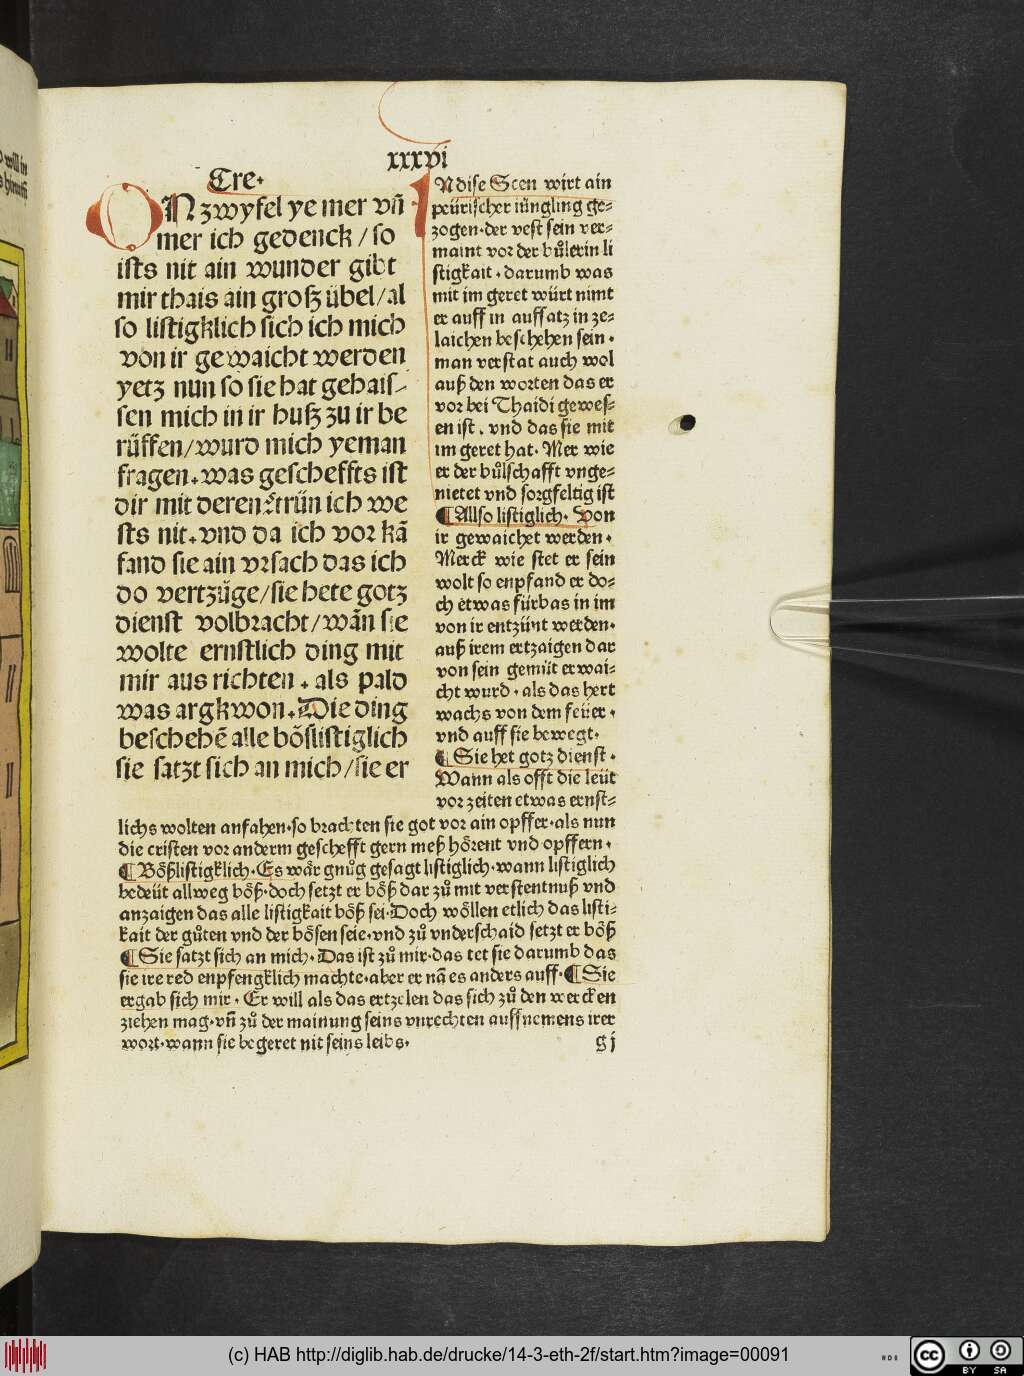 xxxvi
Cre.
ON zwyfel ye mer vn̄
mer ich gedenck / so
ists nit ain wunder gibt
mir thais ain groß übel/al
so listigklich sich ich mich
von ir gewaicht werden
yetz nun so sie hat gehais⸗
sen mich in ir huß zu ir be
rüffen/wurd mich yeman
fragen.was gescheffts ist
dir mit deren trün ich we
sts nit.vnd da ich vor kā
fand sie ain vrsach das ich
do vertzüge/sie hete gotz
dienst volbracht/wān sie
wolte ernstlich ding mit
mir aus richten . als pald
was argkwon.Die ding
beschehē alle bößlistiglich
sie satzt sich an mich/sie er
IN dise Scen wirt ain
peürischer iüngling ge⸗
zogen.der vest sein ver⸗
maint vor der bůlerin li
stigkait . darumb was
mit im geret würt nimt
er auff in auffsatz in ze⸗
laichen beschehen sein .
man verstat auch wol
auß den worten das er
vor bei Thaidi gewes⸗
en ist . vnd das sie mit
im geret hat. Mer wie
er der bůlschafft vnge⸗
nietet vnd sorgfeltig ist
¶Allso listiglich. Von
ir gewaichet werden .
Merck wie stet er sein
wolt so enpfand er do⸗
ch etwas fürbas in im
von ir entzünt werden.
auß irem ertzaigen dar
von sein gemüt erwai⸗
cht wurd . als das hert
wachs von dem feüer .
vnd auff sie bewegt.
¶Sie het gotz dienst .
Wann als offt die leüt
vor zeiten etwas ernst⸗
lichs wolten anfahen.so brachten sie got vor ain opffer.als nun
die cristen vor anderm geschefft gern meß hörent vnd opffern .
¶Bößlistigklich.Es wär gnůg gesagt listiglich.wann listiglich
bedeüt allweg böß.doch setzt er böß dar zů mit verstentnuß vnd
anzaigen das alle listigkait böß sei.Doch wöllen etlich das listi⸗
kait der gůten vnd der bösen seie.vnd zů vnderschaid setzt er böß
¶Sie satzt sich an mich. Das ist zů mir.das tet sie darumb das
sie ire red enpfengklich machte.aber er nā es anders auff.¶Sie
ergab sich mir . Er will als das ertzelen das sich zů den wercken
ziehen mag.vn̄ zů der mainung seins vnrechten auffnemens irer
wort.wann sie begeret nit seins leibs.
g i
(c) HAB http://diglib.hab.de/drucke/14-3-eth-2f/start.htm?image=00091
cc
BY SA